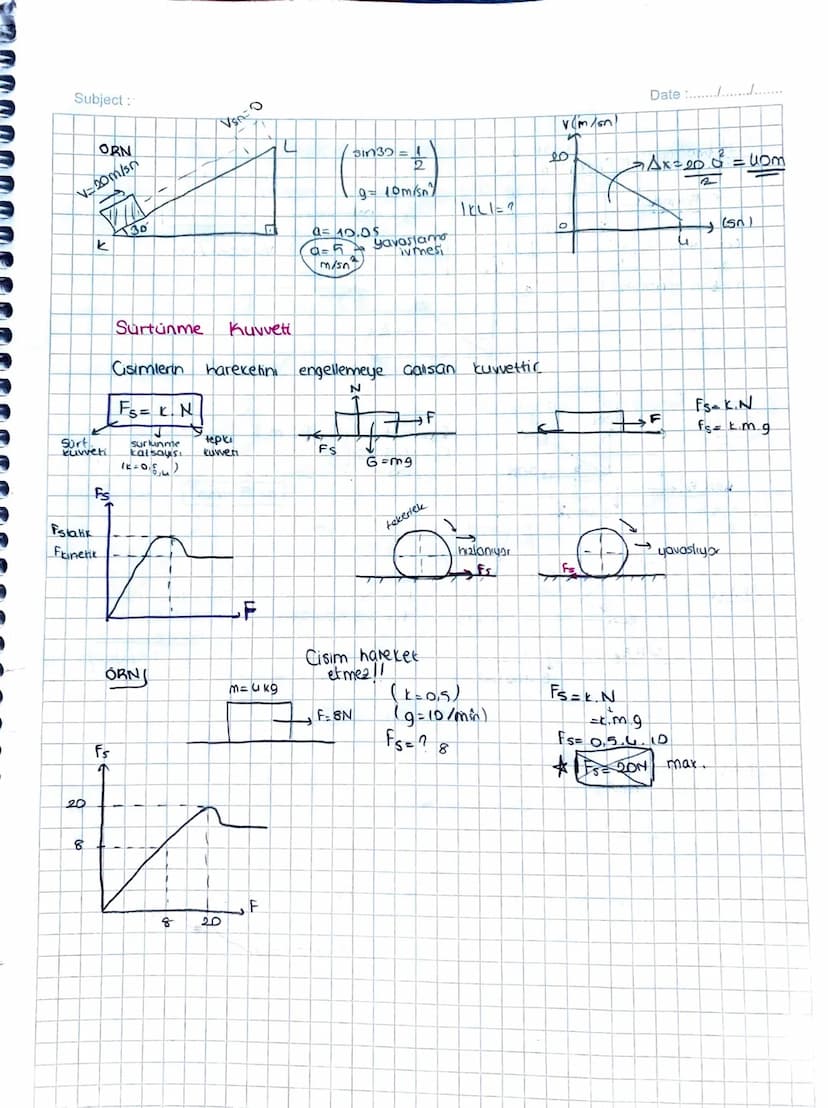 Subject :
Date :....../....../......
ÖRN
V=20m/sn
Vsn=0
L
K
30°
sin30 = 1/2
g= 10m/sn²
|KL|=?
a= 10.0,5
a=5 → yavaşlama ivmesi
m/sn²
V(m/sn)
20
0
4
(sn)
Δx=20.4/2 = 40m
Sürtünme Kuvveti
Cisimlerin hareketini engellemeye çalışan kuvvettir
Fs= k.N
sürt. kuvveti
sürtünme katsayısı
tepki kuvveti
N
F
Fs
G=mg
F
Fs=k.N
Fs= k.m.g
Fs
Fstatik
Fkinetik
F
tekerlek
hızlanıyor
Fs
yavaşlıyor
Fs
ÖRN
Cisim hareket
etmez!!
m=4kg
F=8N
(k=0,5)
(g=10/min)
Fs=? 8
Fs=k.N
=k.m.g
Fs= 0,5.4.10
Fs= 20N max.
Fs
20
8
8
20
F